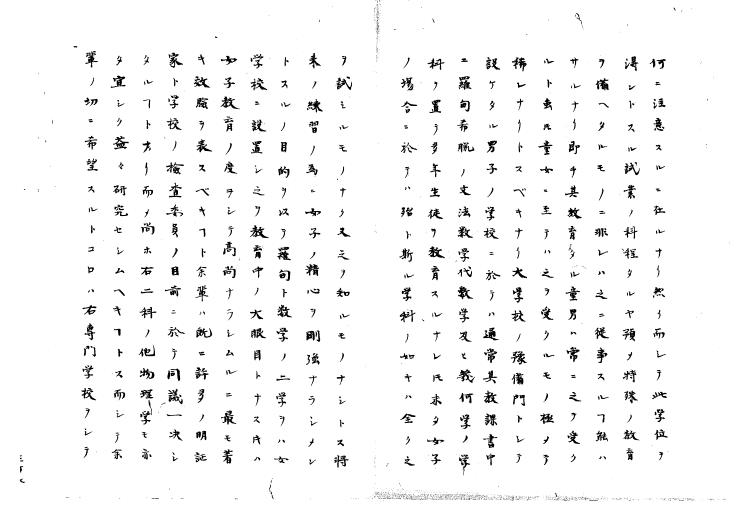 何ニ注意スルニ在ルナリ然リ而シテ此学位ヲ
得ントスル試業ノ科程タルヤ預メ特殊ノ教育
ヲ備ヘタルモノニ非レハ之ニ従事スルヿ能ハ
サルナリ即チ其教育タル童男ハ常ニ之ヲ受ク
ルト虽𪜈童女ニ至テハ之ヲ受クルモノ極メテ
稀レナリトスベキナリ大学校ノ豫備門トシテ
設ケタル男子ノ学校ニ於テハ通常其教課書中
ニ羅甸希臘ノ文法数学代数学及ヒ幾何学ノ学
科ヲ置テ多年生徒ヲ教育スルナレ𪜈未タ女子
ノ場合ニ於テハ殆ト斯ル学科ノ如キハ全ク之
ヲ試ミルモノナク又之ヲ知ルモノナシトス将
来ノ練習ノ為ニ女子ノ精心ヲ剛強ナラシメン
トスルノ目的ヲ以テ羅甸ト数学ノ二学ヲハ女
学校ニ設置シ之ヲ教育中ノ大眼目トナスキハ
女子教育ノ度ヲシテ高尚ナラシムルニ最モ著
キ效驗ヲ表スベキヿト余輩ハ既ニ許多ノ明証
家ト学校ノ検査委員ノ目前ニ於テ同議一決シ
タルヿトナリ而メ尚ホ右二科ノ他物理学モ亦
タ宜シク益々研究セシムヘキヿトス而シテ余
輩ノ切ニ希望スルトコロハ右専門学校ヲシテ